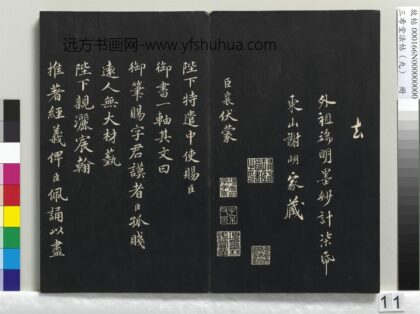 远方书画网-www.yfshuhua.com
去
外祖端明墨妙計柒帋
東山謝家藏
臣襄伏蒙
陛下特遣中使賜臣
御書一軸其文曰
御筆賜字君謨者臣孤賤
遠人無大材藝
陛下親灑宸翰
推著經義俾臣佩誦以盡
故帖 000166N000000000
三希堂法帖(九) 册
11